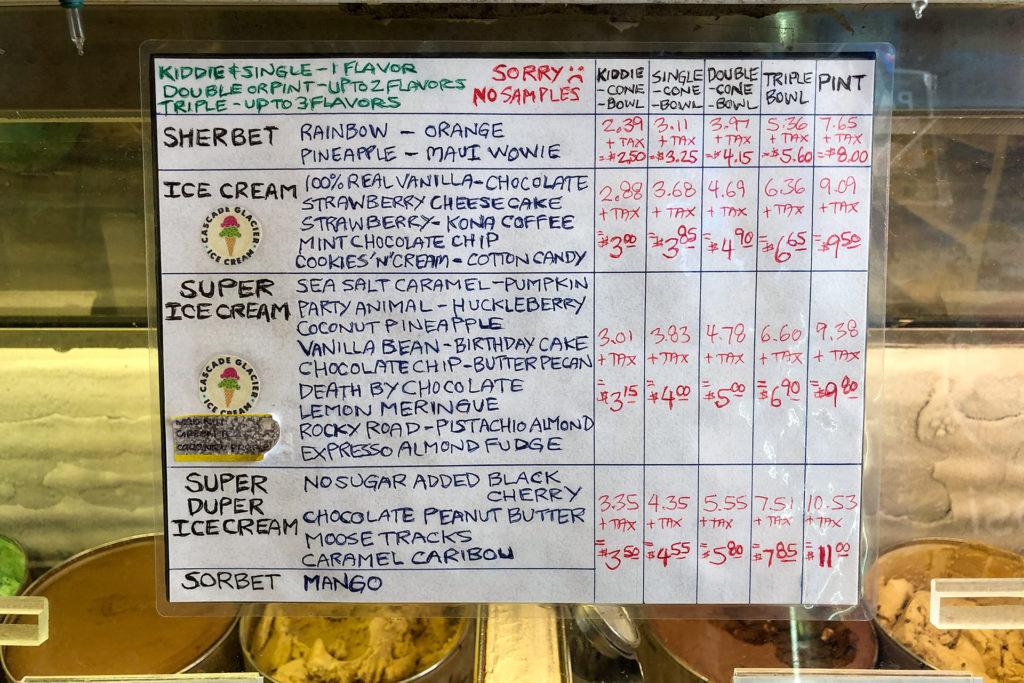 KIDDIE & SINGLE - 1 FLAVOR
DOUBLE OR PINT - UP TO 2 FLAVORS
TRIPLE - UP TO 3 FLAVORS
SORRY
NO SAMPLES
KIDDIE -CONE -BOWL
SINGLE -CONE -BOWL
DOUBLE -CONE -BOWL
TRIPLE BOWL
PINT
SHERBET
RAINBOW - ORANGE
PINEAPPLE - MAUI WOWIE
2.39 3.11 3.97 5.36 7.65
+ TAX + TAX + TAX + TAX + TAX
=$2.50 =$3.25 =$4.15 =$5.60 =$8.00
ICE CREAM
CASCADE GLACIER ICE CREAM
100% REAL VANILLA - CHOCOLATE
STRAWBERRY CHEESECAKE
STRAWBERRY - KONA COFFEE
MINT CHOCOLATE CHIP
COOKIES 'N' CREAM - COTTON CANDY
2.88 3.68 4.69 6.36 9.09
+ TAX + TAX + TAX + TAX + TAX
=$3.00 =$3.85 =$4.90 =$6.65 =$9.50
SUPER
ICE CREAM
CASCADE GLACIER ICE CREAM
SEA SALT CARAMEL - PUMPKIN
PARTY ANIMAL - HUCKLEBERRY
COCONUT PINEAPPLE
VANILLA BEAN - BIRTHDAY CAKE
CHOCOLATE CHIP - BUTTER PECAN
DEATH BY CHOCOLATE
LEMON MERINGUE
ROCKY ROAD - PISTACHIO ALMOND
EXPRESSO ALMOND FUDGE
3.01 3.83 4.78 6.60 9.38
+ TAX + TAX + TAX + TAX + TAX
=$3.15 =$4.00 =$5.00 =$6.90 =$9.80
SUPER
DUPER
ICE CREAM
NO SUGAR ADDED BLACK
CHERRY
CHOCOLATE PEANUT BUTTER
MOOSE TRACKS
CARAMEL CARIBOU
3.35 4.35 5.55 7.51 10.53
+ TAX + TAX + TAX + TAX + TAX
=$3.50 =$4.55 =$5.80 =$7.85 =$11.00
SORBET
MANGO